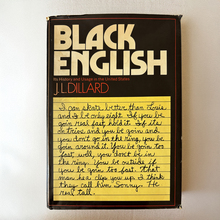 BLACK
ENGLISH
Its History and Usage in the United States
J.L. DILLARD
I can skate better than Louie
and I be only eight. If you be
goin real fast, hold it. If it's
on trios and you be goin and
you don't go in the ring, you be
goin around it. You be goin too
fast, well, you don't be in
the ring. You be outside if
you be goin too fast. That
man he clip you up. I think
they call him Sonny. He
real tall.